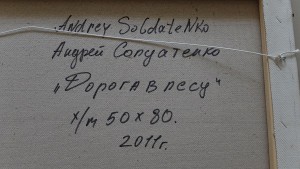 Andrey SoldateNko
Андрей Солдатенко
„Дорога в лесу"
х/м 50 х 80.
2011г.